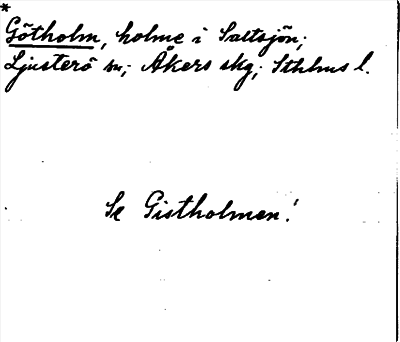 *
Götholm, holme i Saltsjön;
Ljusterö sn; Åkers skg; Sthlms l.
Se Gistholmen!